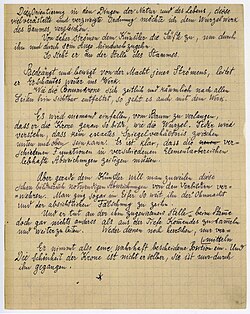 Orientierung in den Dingen der Natur und des Lebens, diese
vielverästelte und verzweigte Ordnung möchte ich dem Wurzelwerk
des Baumes vergleichen.
Von daher strömen dem Künstler die Säfte zu, um durch
ihn und durch sein Auge hindurch zu gehn.
So steht er an der Stelle des Stammes.
Bedrängt und bewegt von der Macht jenes Strömens, leitet
er Erschautes weiter ins Werk.
Wie die Baumkrone sich zeitlich und räumlich nach allen
Seiten hin sichtbar entfaltet, so geht es auch mit dem Werk.
Es wird niemand einfallen, vom Baum zu verlangen,
dass er die Krone genau so bilde wie die Wurzel. Jeder wird
verstehen, dass kein exactes Spiegelverhältnis zwischen
unten und oben sein kann. Es ist klar, dass die
verschiedenen Functionen in verschiedenen Elementarbereichen
lebhafte Abweichungen zeitigen müssen.
Aber gerade dem Künstler will man zuweilen diese
schon bildnerisch notwendigen Abweichungen von den Vorbildern verwehren.
Man ging sogar im Eifer so weit, ihn der Ohnmacht
und der absichtlichen Fälschung zu zeihn.
Und er tut an der ihm zugewiesenen Stelle beim Stamme
doch gar nichts anderes, als aus der Tiefe Kommendes zu sammeln
und weiterzuleiten. Weder dienen noch herrschen, nur vermitteln.
Er nimmt also eine wahrhaft bescheidene Position ein. Und
die Schönheit der Krone ist nicht er selber, sie ist nur durch
ihn gegangen.